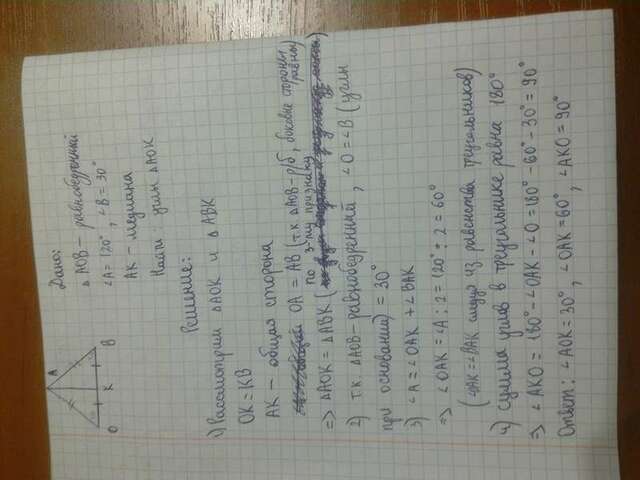 A
O
K
B
Дано:
△ AOB - равнобедренный
∠A = 120°, ∠B = 30°
AK - медиана
Найти: углы △AOK
Решение:
1) Рассмотрим △AOK и △ABK
OK = KB
AK - общая сторона
OA = AB (т.к △AOB - р/б, боковые стороны равны)
=> △AOK = △ABK (по 3-му признаку)
2) т.к. △AOB - равнобедренный, ∠O = ∠B (углы
при основании) = 30°
3) ∠A = ∠OAK + ∠BAK
=> ∠OAK = ∠A : 2 = 120° : 2 = 60°
(∠OAK = ∠BAK следует из равенства треугольников)
4) Сумма углов в треугольнике равна 180°
=> ∠AKO = 180° - ∠OAK - ∠O = 180° - 60° - 30° = 90°
Ответ: ∠AOK = 30°, ∠OAK = 60°, ∠AKO = 90°